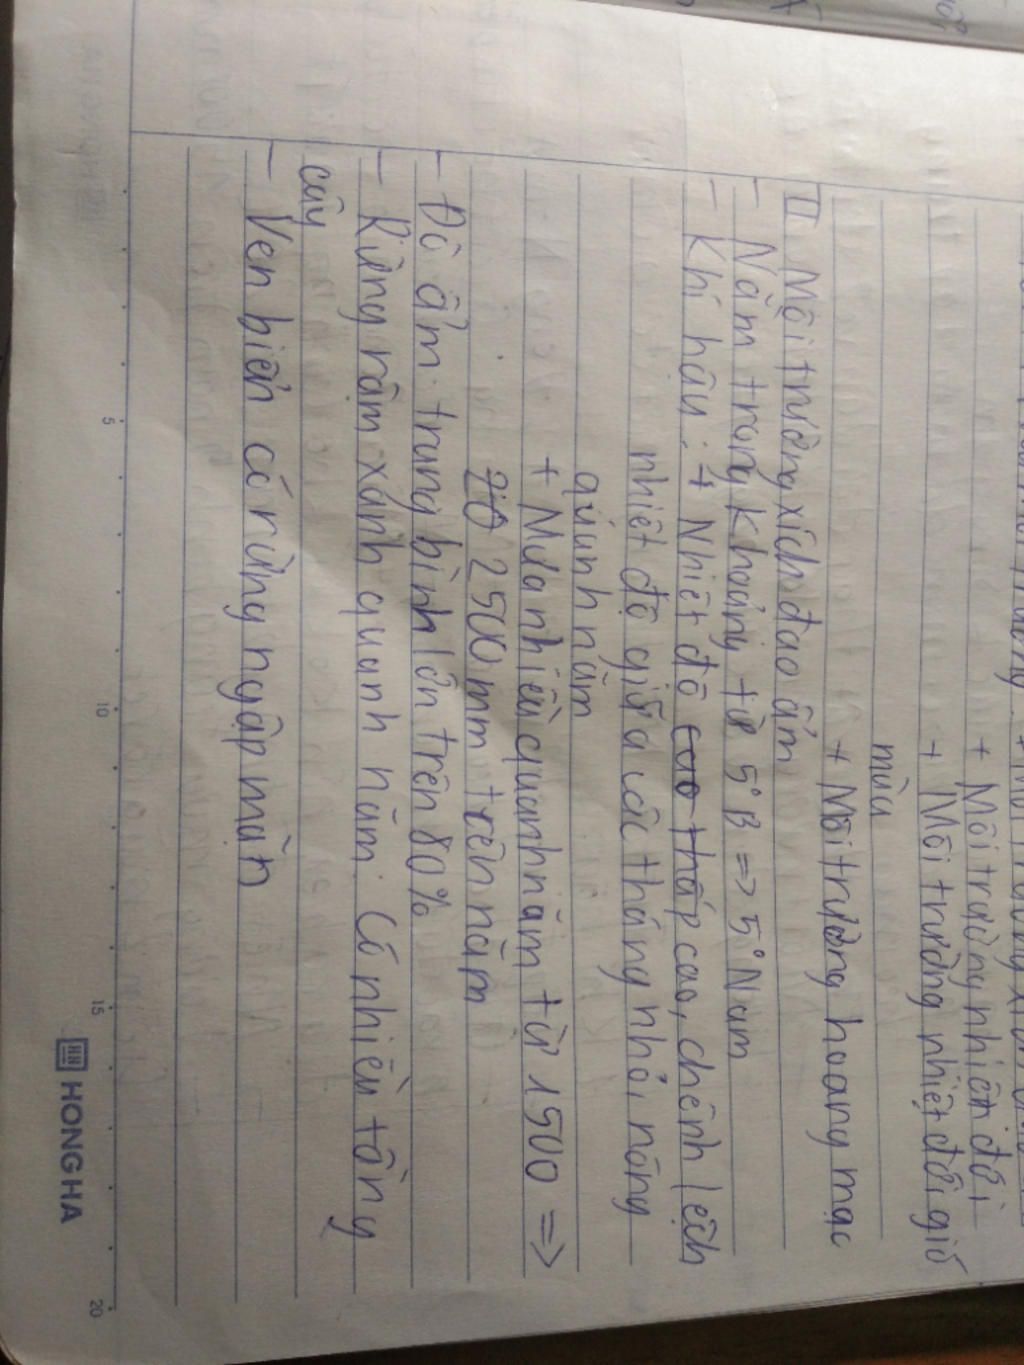 + Môi trường nhiệt đới
+ Môi trường nhiệt đới gió
mùa
+ Môi trường hoang mạc
II Môi trường xích đạo ẩm
- Nằm trong khoảng từ 5°B => 5°Nam
- Khí hậu: + Nhiệt độ cao thấp cao, chênh lệch
nhiệt độ giữa các tháng nhỏ, nóng
quanh năm
+ Mưa nhiều quanh năm từ 1500 =>
2500mm trên năm
- Độ ẩm trung bình lớn trên 80%
- Rừng rậm xanh quanh năm. Có nhiều tầng
cây
- Ven biển có rừng ngập mặn
5 10 15 20
HONG HA